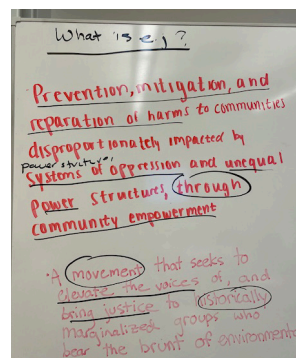 What is ej?
Prevention, mitigation, and
reparation of harms to communities
disproportionately impacted by
systems of oppression and unequal
power structures, through
community empowerment
· A movement that seeks to
elevate the voices of, and
bring justice to historically
marginalized groups who
bear the brunt of environmental